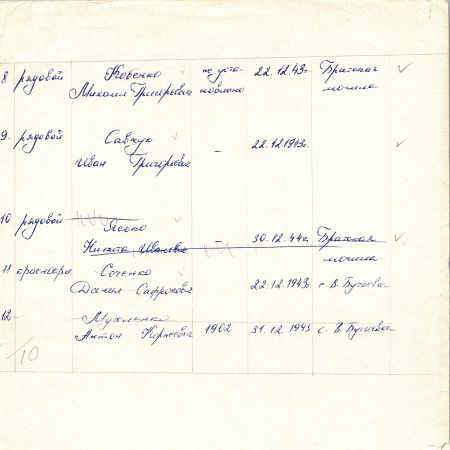 8 рядовой Кобенко не уста- 22.12.43г. Братская
Михаил Григорьевич новлено могила
9. рядовой Савчук 22.12.1943г.
Иван Григорьевич -
10. рядовой Ясько
Никита Иванович 30.12.44г. Братская
могила
11 Соченко
22.12.1943г. с. В.
12
Антон Корнеевич 1902 31.12.1943 с. В.
10